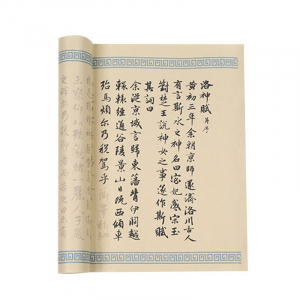 洛神賦 并序
黃初三年余朝京師還濟洛川古人
有言斯水之神名曰宓妃感宋玉
對楚王說神女之事遂作斯賦
其詞曰
余從京域言歸東藩背伊闕越
轘轅經通谷陵景山日既西傾車
殆馬煩爾乃稅駕乎